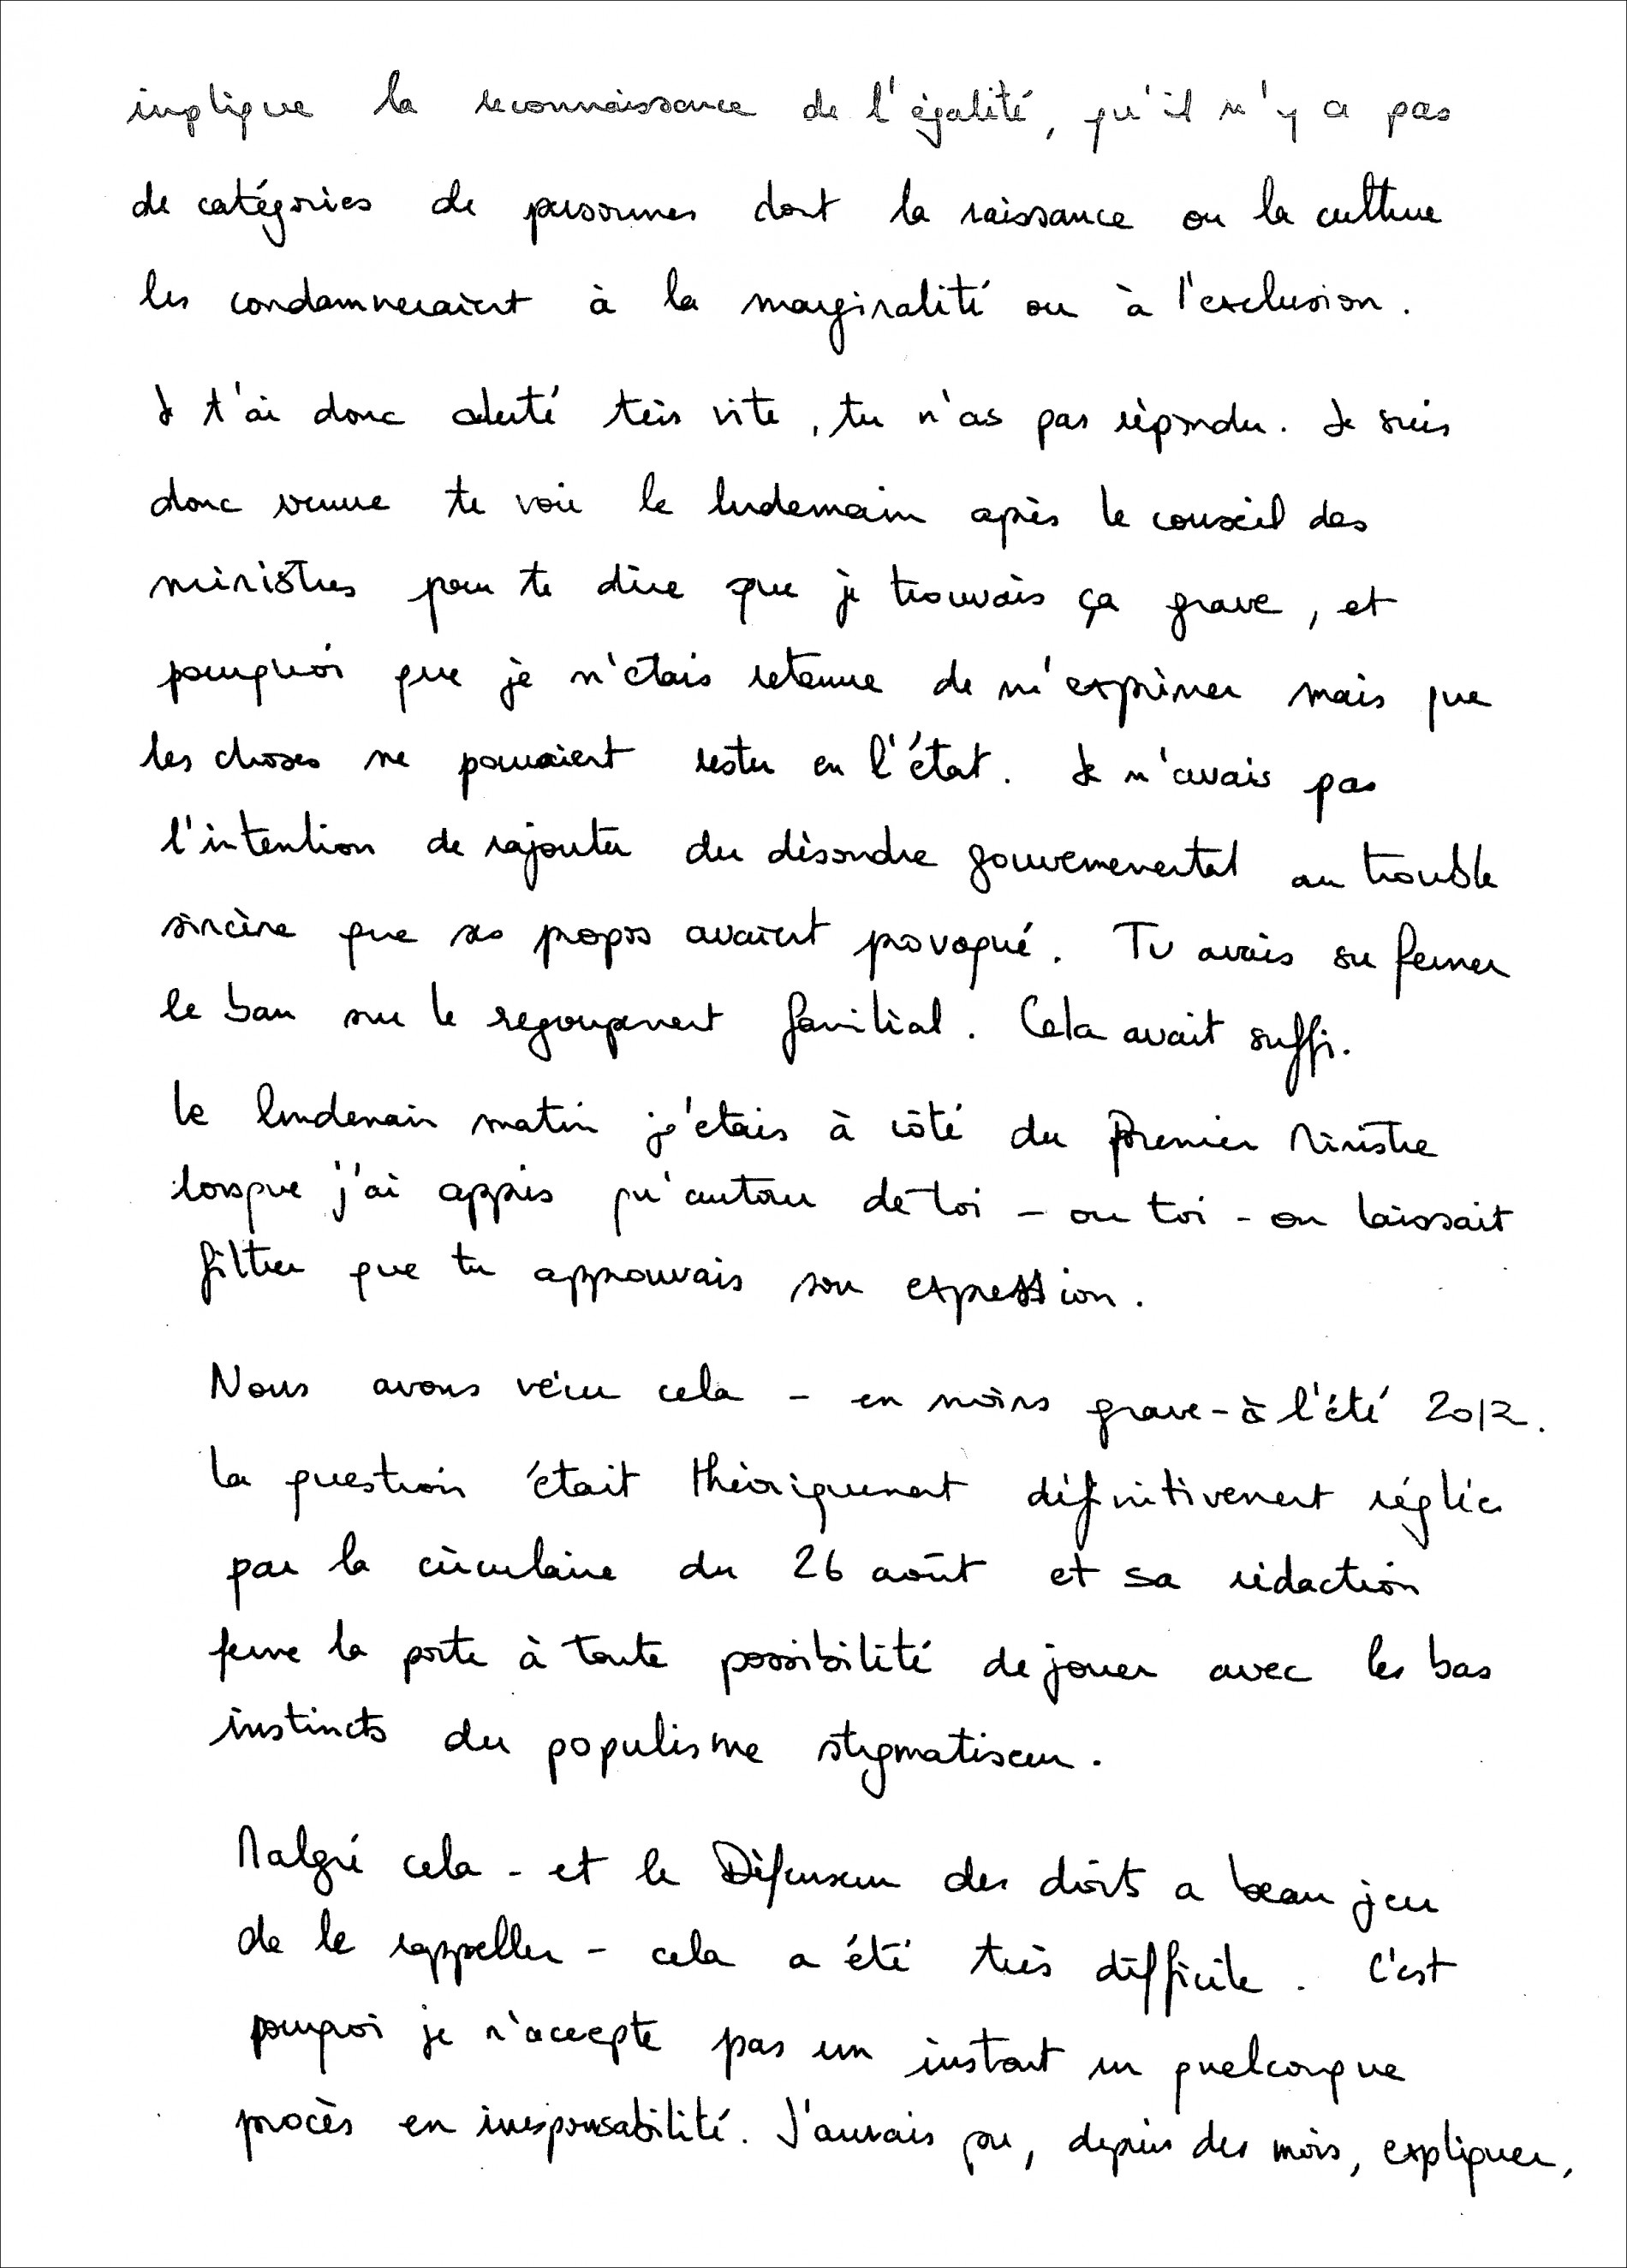 implique la reconnaissance de l'égalité, qu'il n'y a pas
de catégories de personnes dont la naissance ou la culture
les condamneraient à la marginalité ou à l'exclusion.
Je t'ai donc alerté très vite, tu n'as pas répondu. Je suis
donc venue te voir le lendemain après le conseil des
ministres pour te dire que je trouvais ça grave, et
pourquoi que je m'étais retenue de m'exprimer mais que
les choses ne pouvaient rester en l'état. Je n'avais pas
l'intention de rajouter du désordre gouvernemental au trouble
sincère que ses propos avaient provoqué. Tu avais su fermer
le ban sur le regroupement familial. Cela avait suffi.
Le lendemain matin j'étais à côté du Premier Ministre
lorsque j'ai appris qu'autour de toi - ou toi - on laissait
filtrer que tu approuvais son expression.
Nous avons vécu cela - en moins grave - à l'été 2012.
La question était théoriquement définitivement réglée
par la circulaire du 26 août et sa rédaction
ferme la porte à toute possibilité de jouer avec les bas
instincts du populisme stigmatiseur.
Malgré cela - et le Défenseur des droits a beau jeu
de le rappeller - cela a été très difficile. C'est
pourquoi je n'accepte pas un instant un quelconque
procès en irresponsabilité. J'aurais pu, depuis des mois, expliquer,